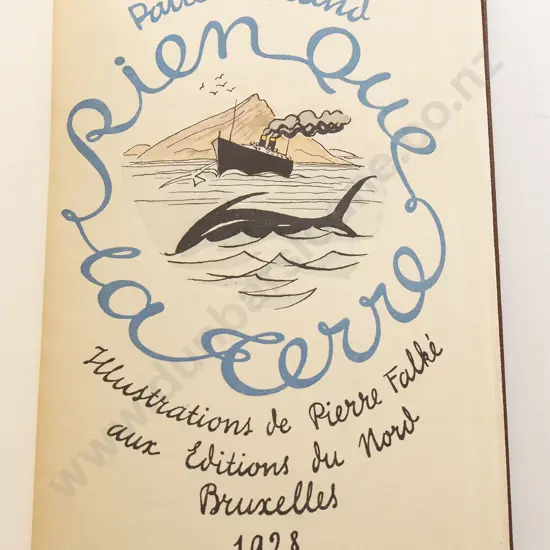 Rien que
la Terre
Illustrations de Pierre Falké
aux Editions du Nord
Bruxelles
1928
www.dunbarsloane.co.nz